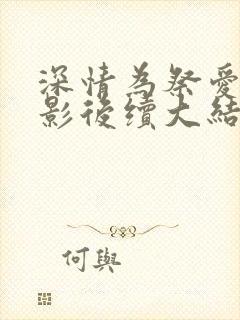 深情為祭愛
影後續大結
何與